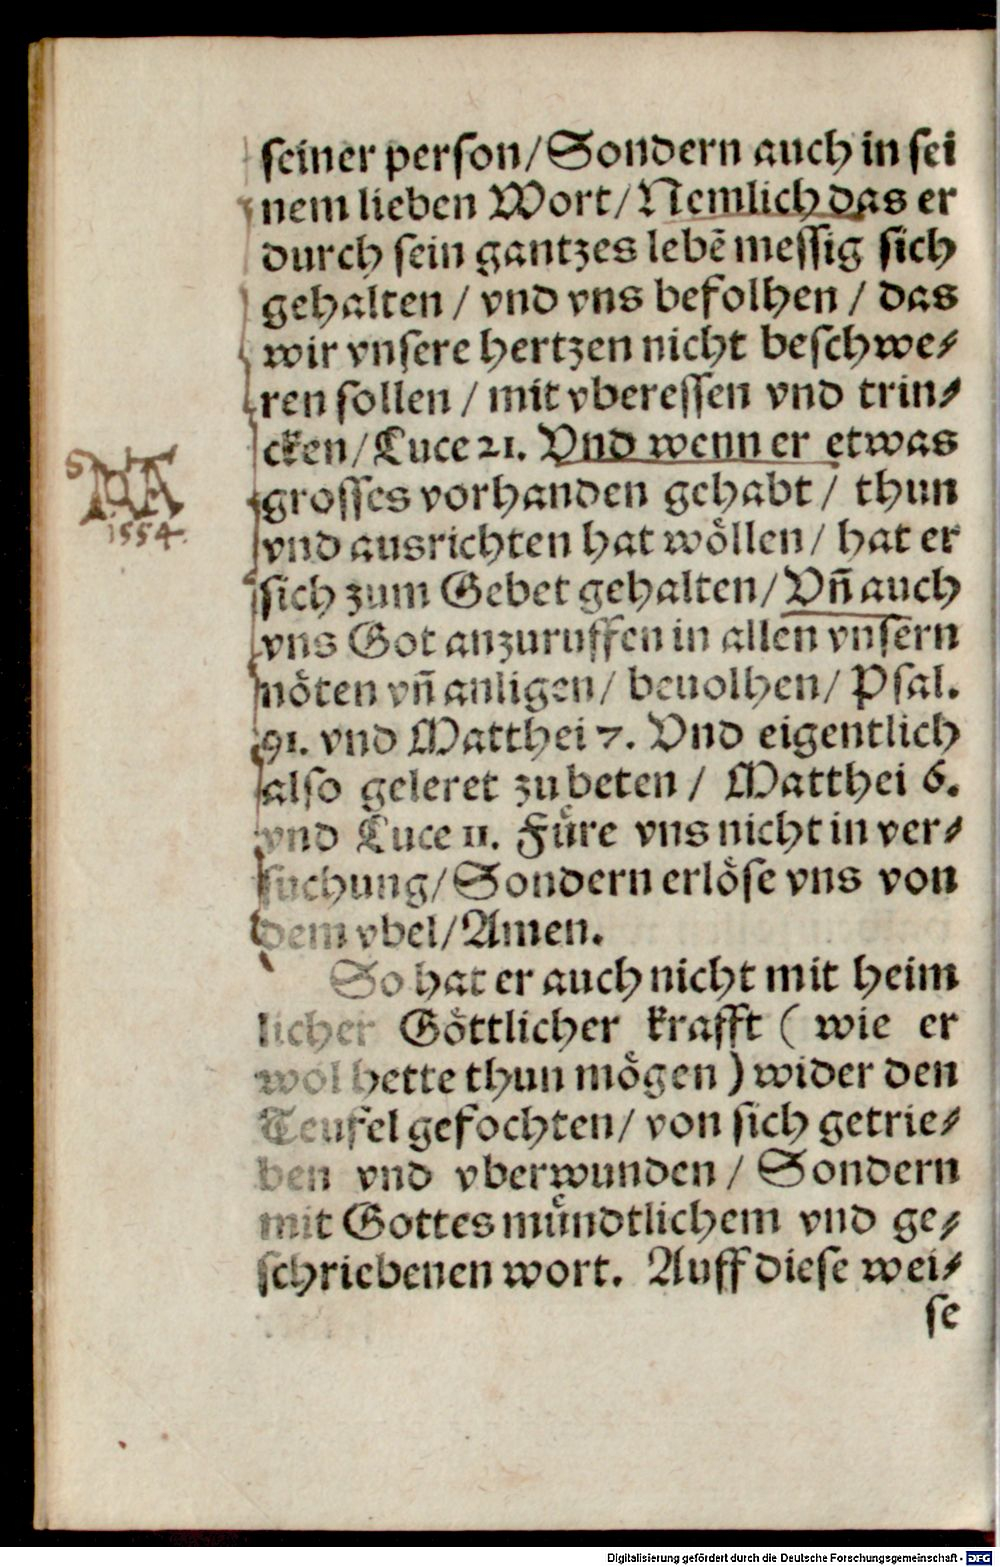 seiner person/Sondern auch in sei
nem lieben Wort/Nemlich das er
durch sein gantzes lebẽ messig sich
gehalten / vnd vns befolhen / das
wir vnsere hertzen nicht beschwe⸗
ren sollen / mit vberessen vnd trin⸗
cken/Luce 21. Vnd wenn er etwas
grosses vorhanden gehabt / thun
1554.
vnd ausrichten hat woͤllen/ hat er
sich zum Gebet gehalten/Vñ auch
vns Got anzuruffen in allen vnsern
noͤten vñ anligen/ beuolhen/ Psal.
91. vnd Matthei 7. Vnd eigentlich
also geleret zu beten / Matthei 6.
vnd Luce 11. Fuͤre vns nicht in ver⸗
suchung/Sondern erloͤse vns von
dem vbel/Amen.
So hat er auch nicht mit heim
licher Goͤttlicher krafft ( wie er
wol hette thun moͤgen ) wider den
Teufel gefochten/ von sich getrie⸗
ben vnd vberwunden / Sondern
mit Gottes muͤndtlichem vnd ge⸗
schriebenen wort. Auff diese wei⸗
se
Digitalisierung gefördert durch die Deutsche Forschungsgemeinschaft - DFG